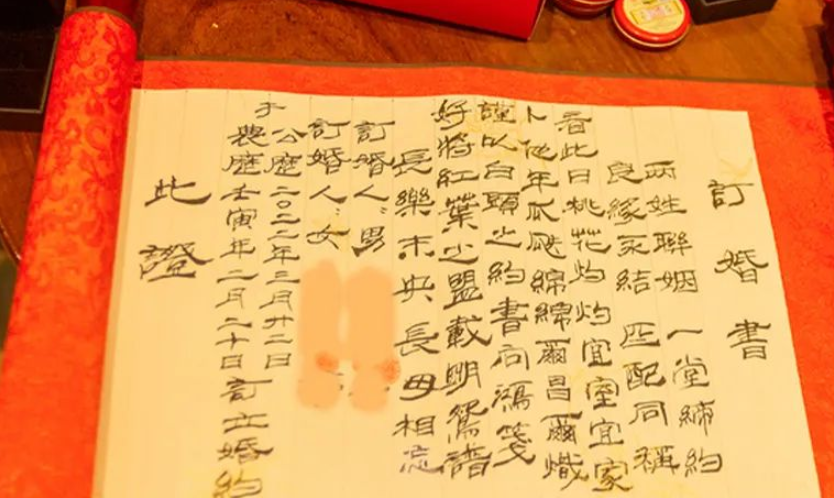 訂婚書
兩姓聯姻 一堂締約
良緣永結 匹配同稱
看此日桃花灼灼宜室宜家
卜他年瓜瓞綿綿爾昌爾熾
謹以白頭之約書向鴻箋
好將紅葉之盟載明鴛譜
長樂未央長毋相忘
訂婚人：男
訂婚人：女
于
公歷二〇二二年三月廿二日
農歷壬寅年二月二十日訂立婚約
此證